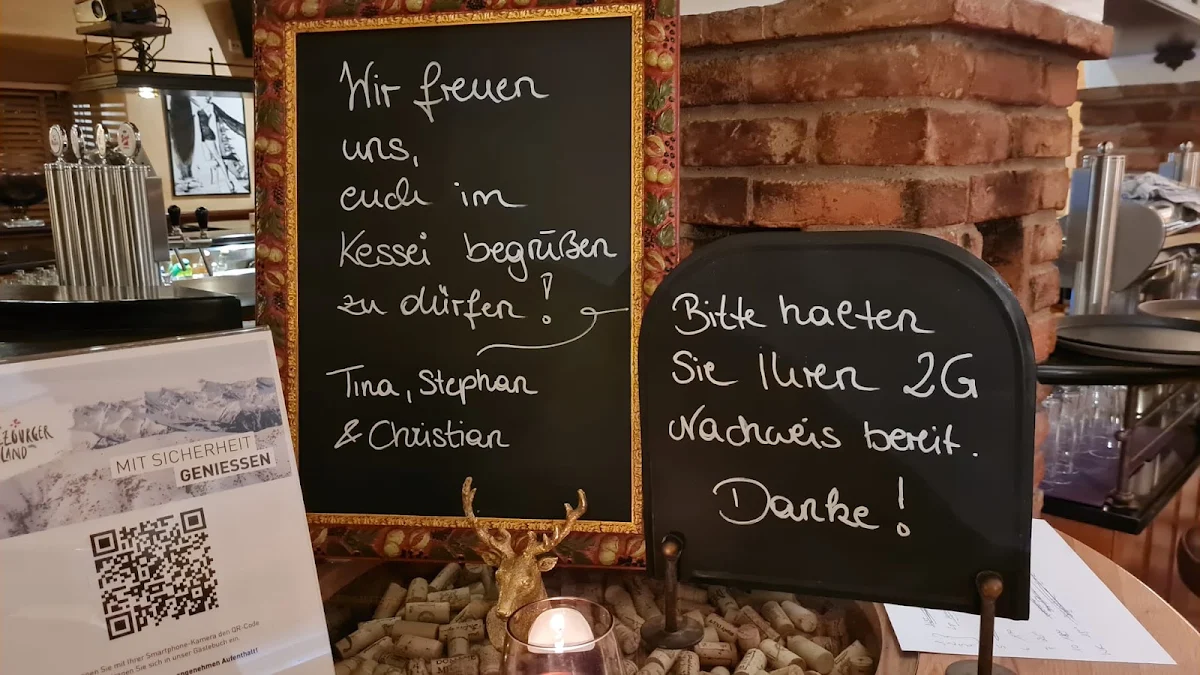 Wir freuen
uns,
euch im
Kessei begrüßen
zu dürfen!
Tina, Stephan
& Christian
Bitte halten
Sie Ihren 2G
Nachweis bereit.
Danke!
LAND
MIT SICHERHEIT
GENIESSEN
Sie mit Ihrer Smartphone-Kamera den QR-Code
Sie sich in unser Gästebuch ein.
angenehmen Aufenthalt!